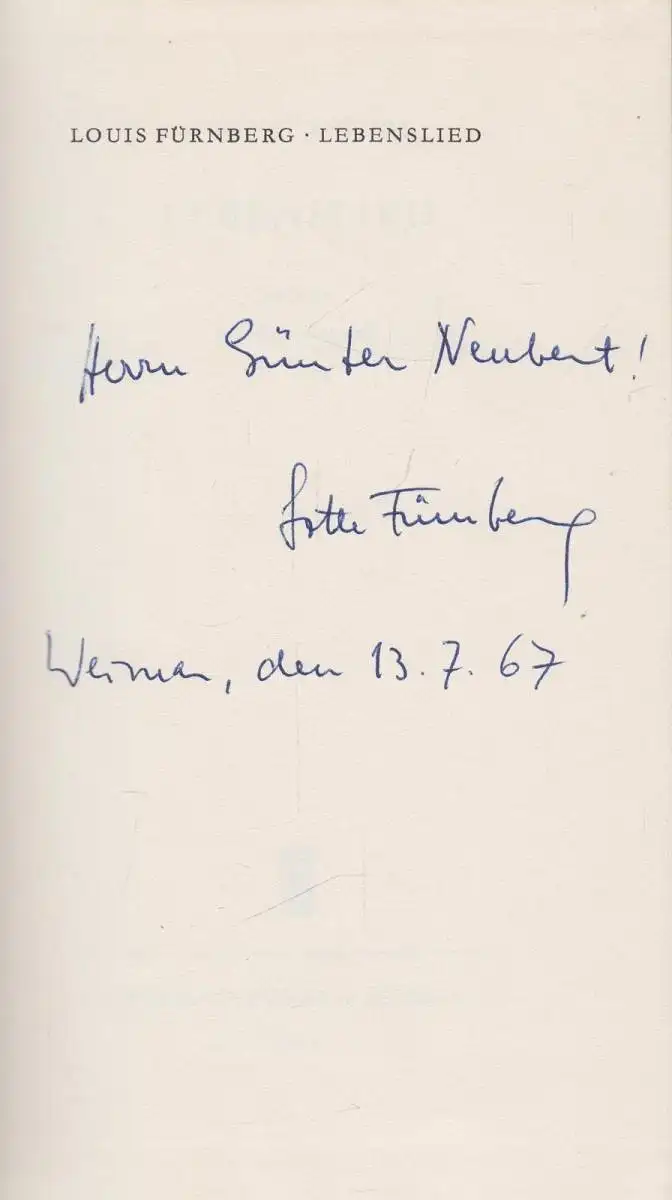 LOUIS FÜRNBERG · LEBENSLIED
Herrn Günter Neubert!
Lotte Fürnberg
Weimar, den 13. 7. 67